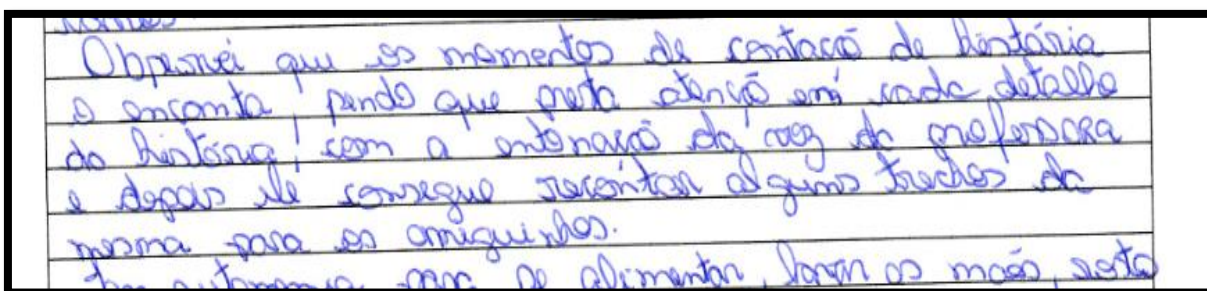 Observei que os momentos de contação de história
o encanta, sendo que presta atenção em cada detalhe
da história, com a entonação da voz da professora
e depois ele consegue recontar alguns trechos da
mesma para os amiguinhos.
autonomia para se alimentar, lavar as mãos,